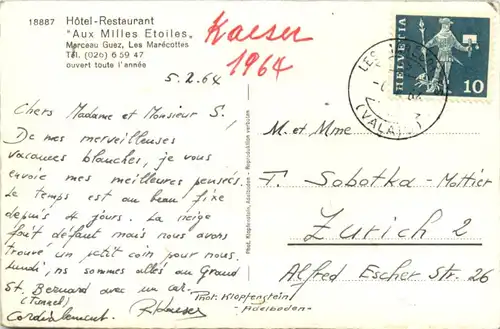 18887 Hôtel-Restaurant
"Aux Milles Etoiles"
Marceau Guez, Les Marécottes
Tél. (026) 6 59 47
ouvert toute l'année
Kaeser
1964
HELVETIA
10
(VALAIS)
5.2.64
Chers Madame et Monsieur S.,
De mes merveilleuses
vacances blanches, je vous
envoie mes meilleures pensés.
Le temps est au beau fixe
depuis 4 jours. La neige
fait défaut mais nous avons
trouvé un petit coin pour nous.
Lundi, ns sommes allés au Grand
St. Bernard avec un car.
(Tunnel)
Cordialement. R. Kaeser
Phot. Klopfenstein, Adelboden - Reproduktion verboten
Phot: Klopfenstein
- Adelboden -
M. et Mme
T. Sobotka-Mottier
Zurich 2
Alfred Escher Str. 26